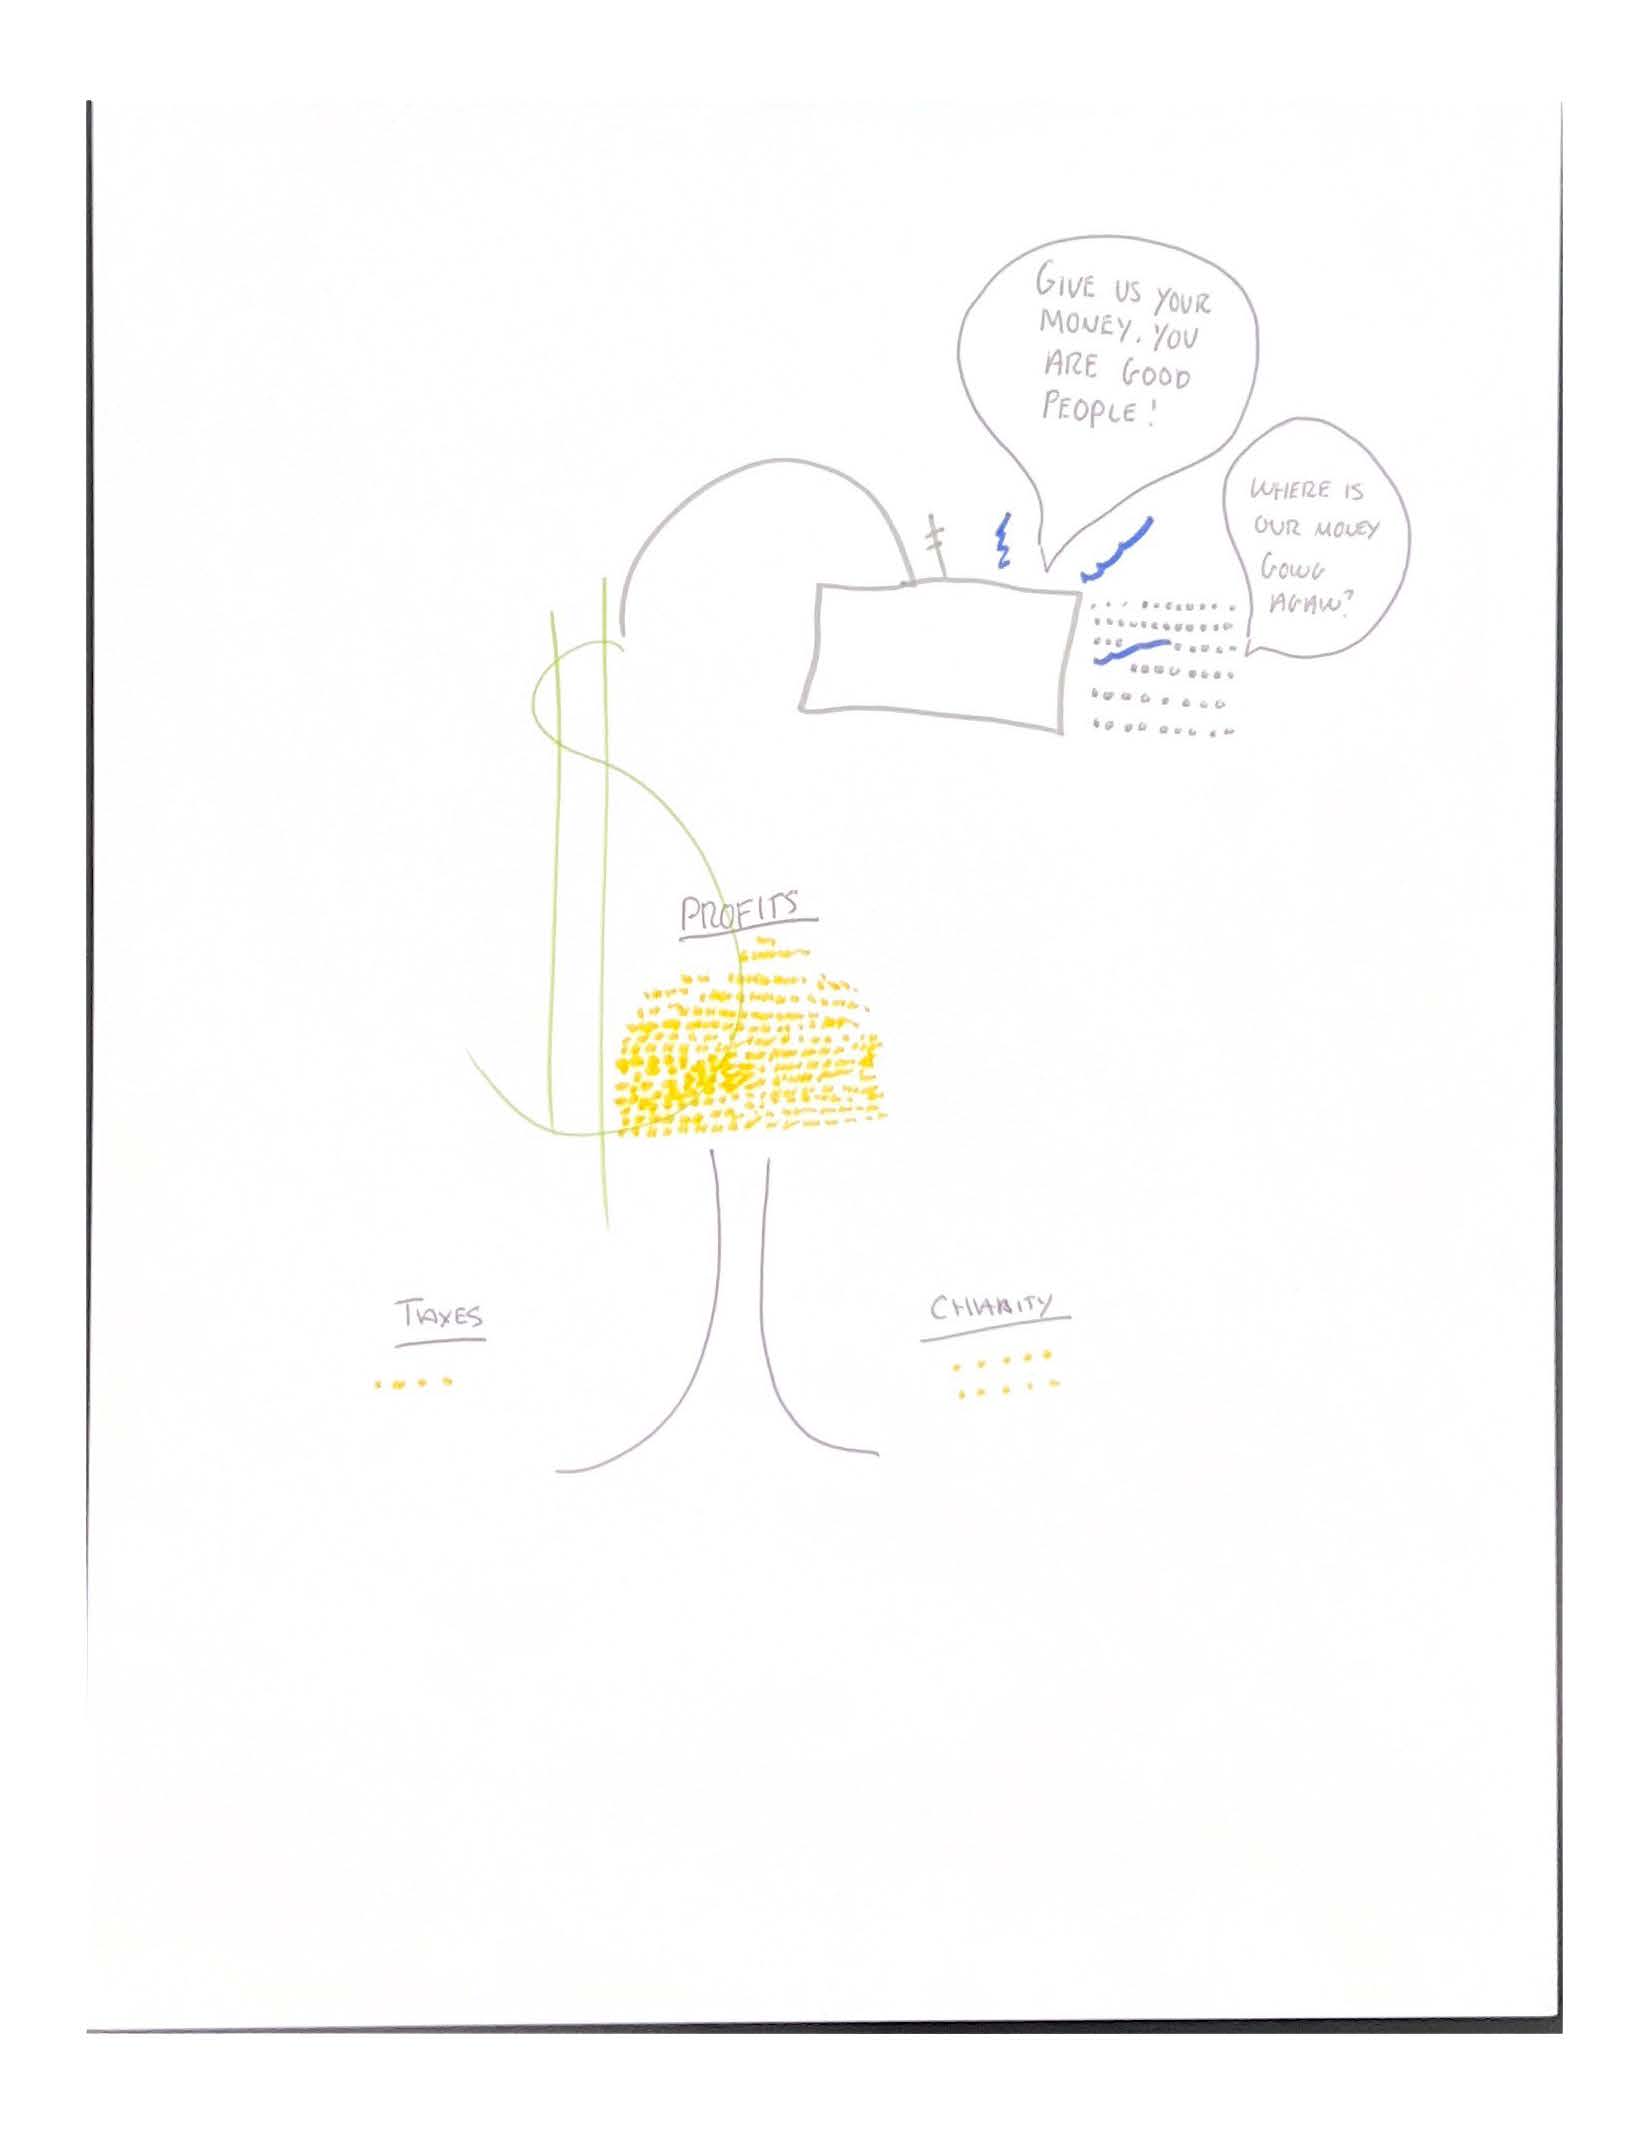 GIVE US YOUR
MONEY. YOU
ARE GOOD
PEOPLE!
WHERE IS
OUR MONEY
GOING
AGAIN?
PROFITS
TAXES
CHARITY